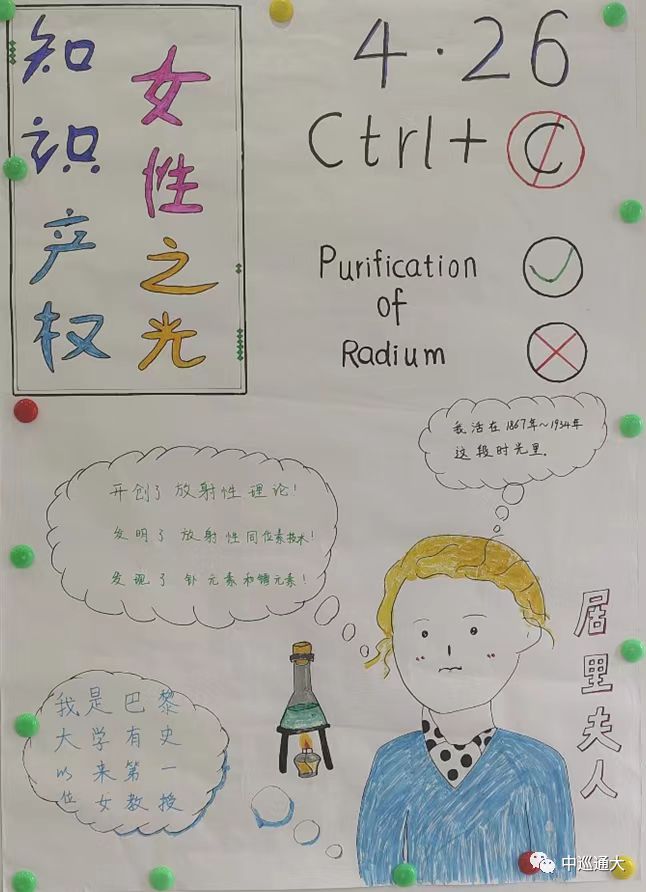 知识产权
女性之光
4·26
Ctrl+ C
Purification
of
Radium
我活在1867年~1934年
这段时光里.
开创了放射性理论!
发明了放射性同位素技术!
发现了钋元素和镭元素!
居里夫人
我是巴黎
大学有史
以来第一
位女教授
中巡通大